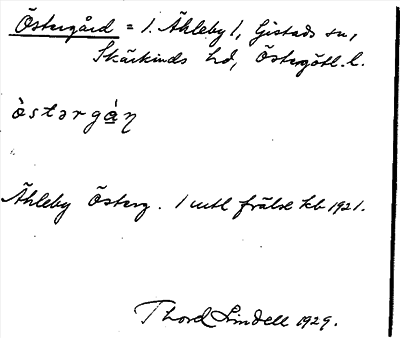 Östergård = 1. Åhleby 1, Gistads sn,
Skärkinds hd, Östergötl. l.
òstərgá̱ɳ
Åhleby Österg. 1 mtl frälse kb 1921.
Thord Lindell 1929.